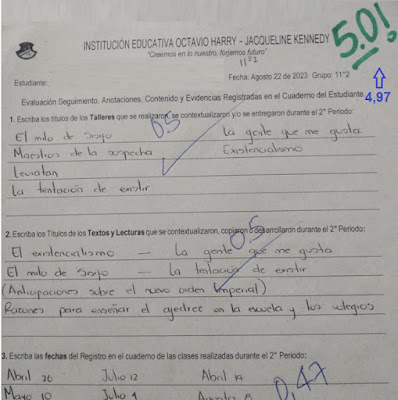 5.0!
INSTITUCIÓN EDUCATIVA OCTAVIO HARRY - JACQUELINE KENNEDY
"Creemos en lo nuestro, forjamos futuro"
11°2
Estudiante:
Fecha: Agosto 22 de 2023 Grupo: 11°2
4,97
Evaluación Seguimiento, Anotaciones, Contenido y Evidencias Registradas en el Cuaderno del Estudiante
1. Escriba los títulos de los Talleres que se realizaron, se contextualizaron y/o se entregaron durante el 2° Periodo:
0.5
El mito de Sisyo La gente que me gusta
Maestros de la sospecha Existencialismo
Leviatan
La tentación de existir
2. Escriba los Títulos de los Textos y Lecturas que se contextualizaron, copiaron o desarrollaron durante el 2° Periodo:
0.5
El existencialismo — La gente que me gusta
El mito de Sisyo — La tentacion de existir
(Anticipaciones sobre el nuevo orden imperial)
Razones para enseñar el ajedrez en la escuela y los colegios
3. Escriba las fechas del Registro en el cuaderno de las clases realizadas durante el 2° Periodo:
Abril 26 Julio 12 Abril 19
0,47
Mayo 10 Julio Agosto